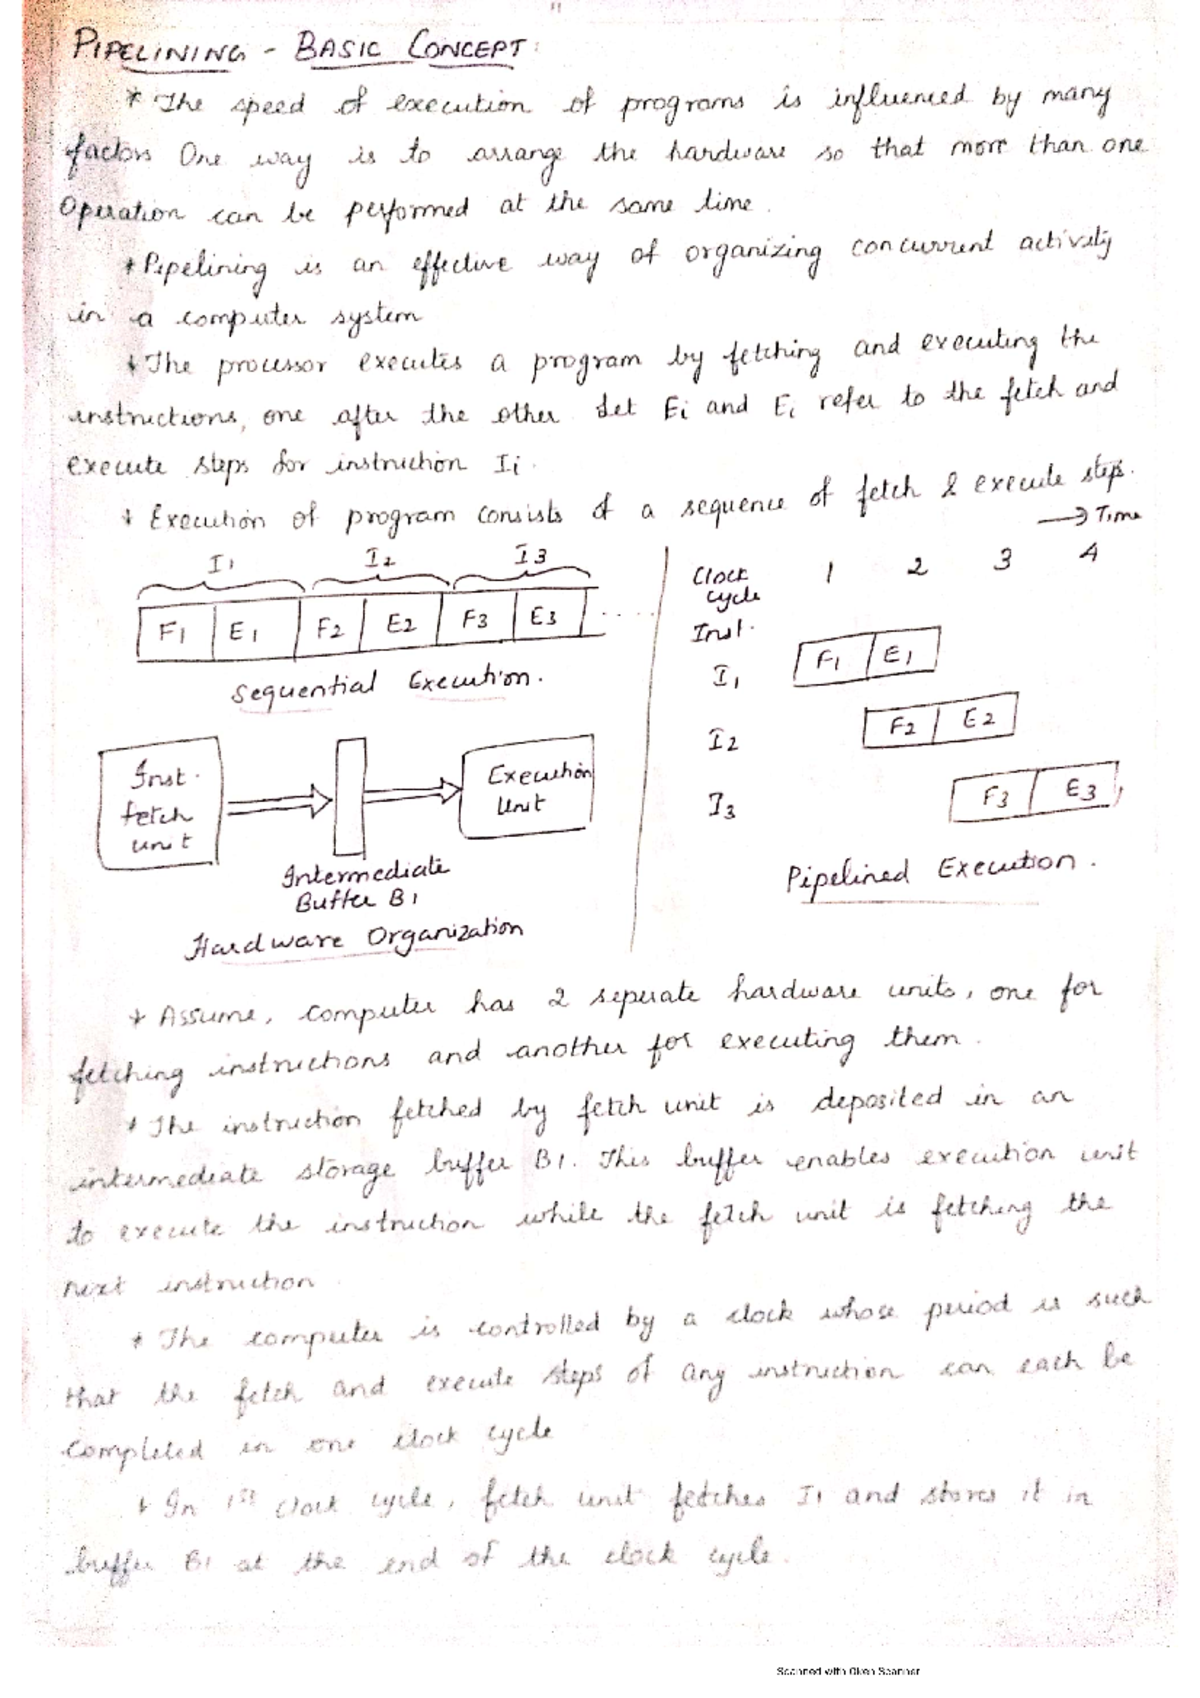 PIPELINING - BASIC CONCEPT:
* The speed of execution of programs is influenced by many
factors One way is to arrange the hardware so that more than one
Operation can be performed at the same time.
* Pipelining is an effective way of organizing concurrent activity
in a computer system
* The processor executes a program by fetching and executing the
instructions, one after the other. Let Ei and Ei refer to the fetch and
execute steps for instruction Ii.
* Execution of program consists of a sequence of fetch & execute steps.
→ Time
I1 I2 I3
F1 E1 F2 E2 F3 E3 ......
Sequential Execution.
Inst.
fetch
unit
Execution
Unit
Intermediate
Buffer B1
Hardware Organization
Clock
cycle
1 2 3 4
Inst.
I1 F1 E1
I2 F2 E2
I3 F3 E3
Pipelined Execution.
* Assume, computer has 2 seperate hardware units, one for
fetching instructions and another for executing them.
* The instruction fetched by fetch unit is deposited in an
intermediate storage buffer B1. This buffer enables execution unit
to execute the instruction while the fetch unit is fetching the
next instruction.
* The computer is controlled by a clock whose period is such
that the fetch and execute steps of any instruction can each be
Completed in one clock cycle
* In 1st clock cycle, fetch unit fetches I1 and stores it in
buffer B1 at the end of the clock cycle.
Scanned with Oken Scanner